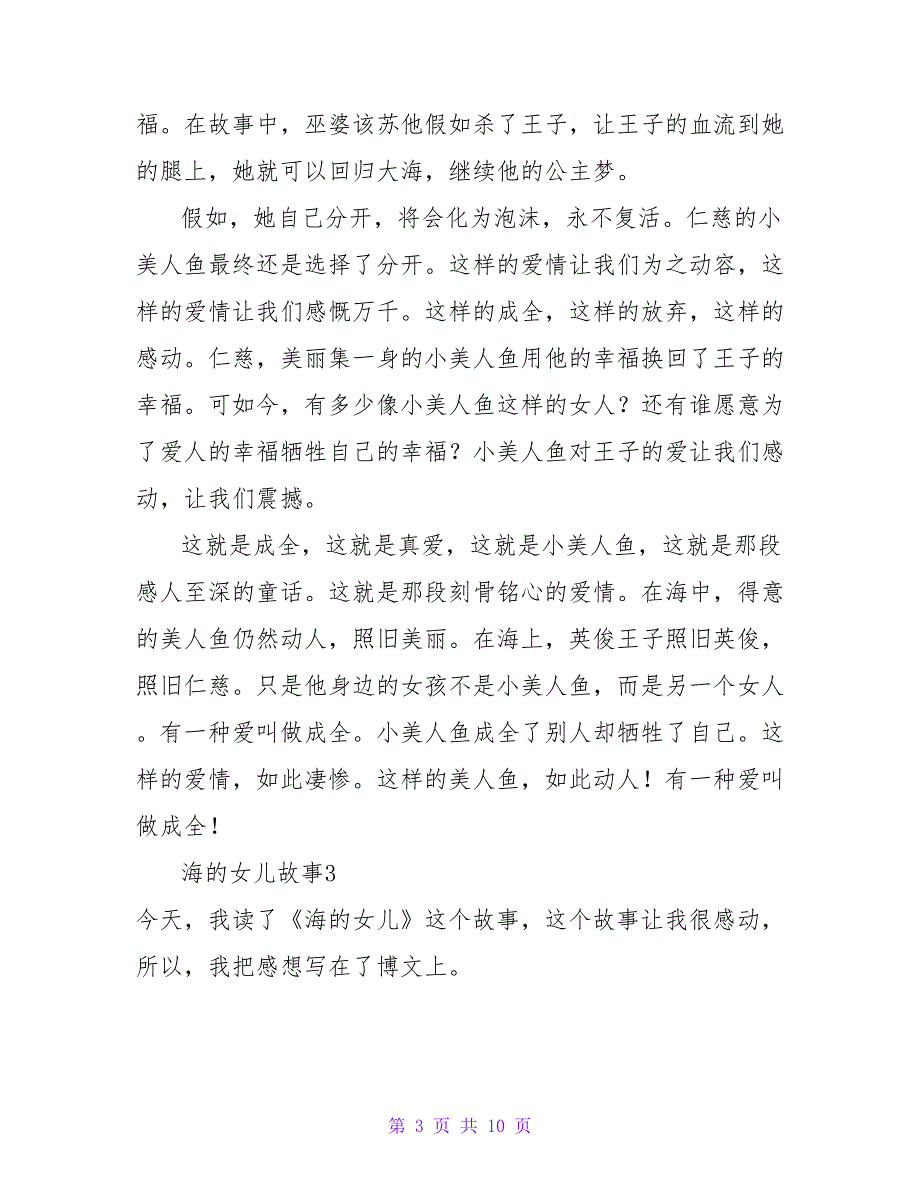 福。在故事中，巫婆该苏他假如杀了王子，让王子的血流到她
的腿上，她就可以回归大海，继续他的公主梦。
假如，她自己分开，将会化为泡沫，永不复活。仁慈的小
美人鱼最终还是选择了分开。这样的爱情让我们为之动容，这
样的爱情让我们感慨万千。这样的成全，这样的放弃，这样的
感动。仁慈，美丽集一身的小美人鱼用他的幸福换回了王子的
幸福。可如今，有多少像小美人鱼这样的女人？还有谁愿意为
了爱人的幸福牺牲自己的幸福？小美人鱼对王子的爱让我们感
动，让我们震撼。
这就是成全，这就是真爱，这就是小美人鱼，这就是那段
感人至深的童话。这就是那段刻骨铭心的爱情。在海中，得意
的美人鱼仍然动人，照旧美丽。在海上，英俊王子照旧英俊，
照旧仁慈。只是他身边的女孩不是小美人鱼，而是另一个女人
。有一种爱叫做成全。小美人鱼成全了别人却牺牲了自己。这
样的爱情，如此凄惨。这样的美人鱼，如此动人！有一种爱叫
做成全！
海的女儿故事3
今天，我读了《海的女儿》这个故事，这个故事让我很感动，
所以，我把感想写在了博文上。
第 3 页 共 10 页